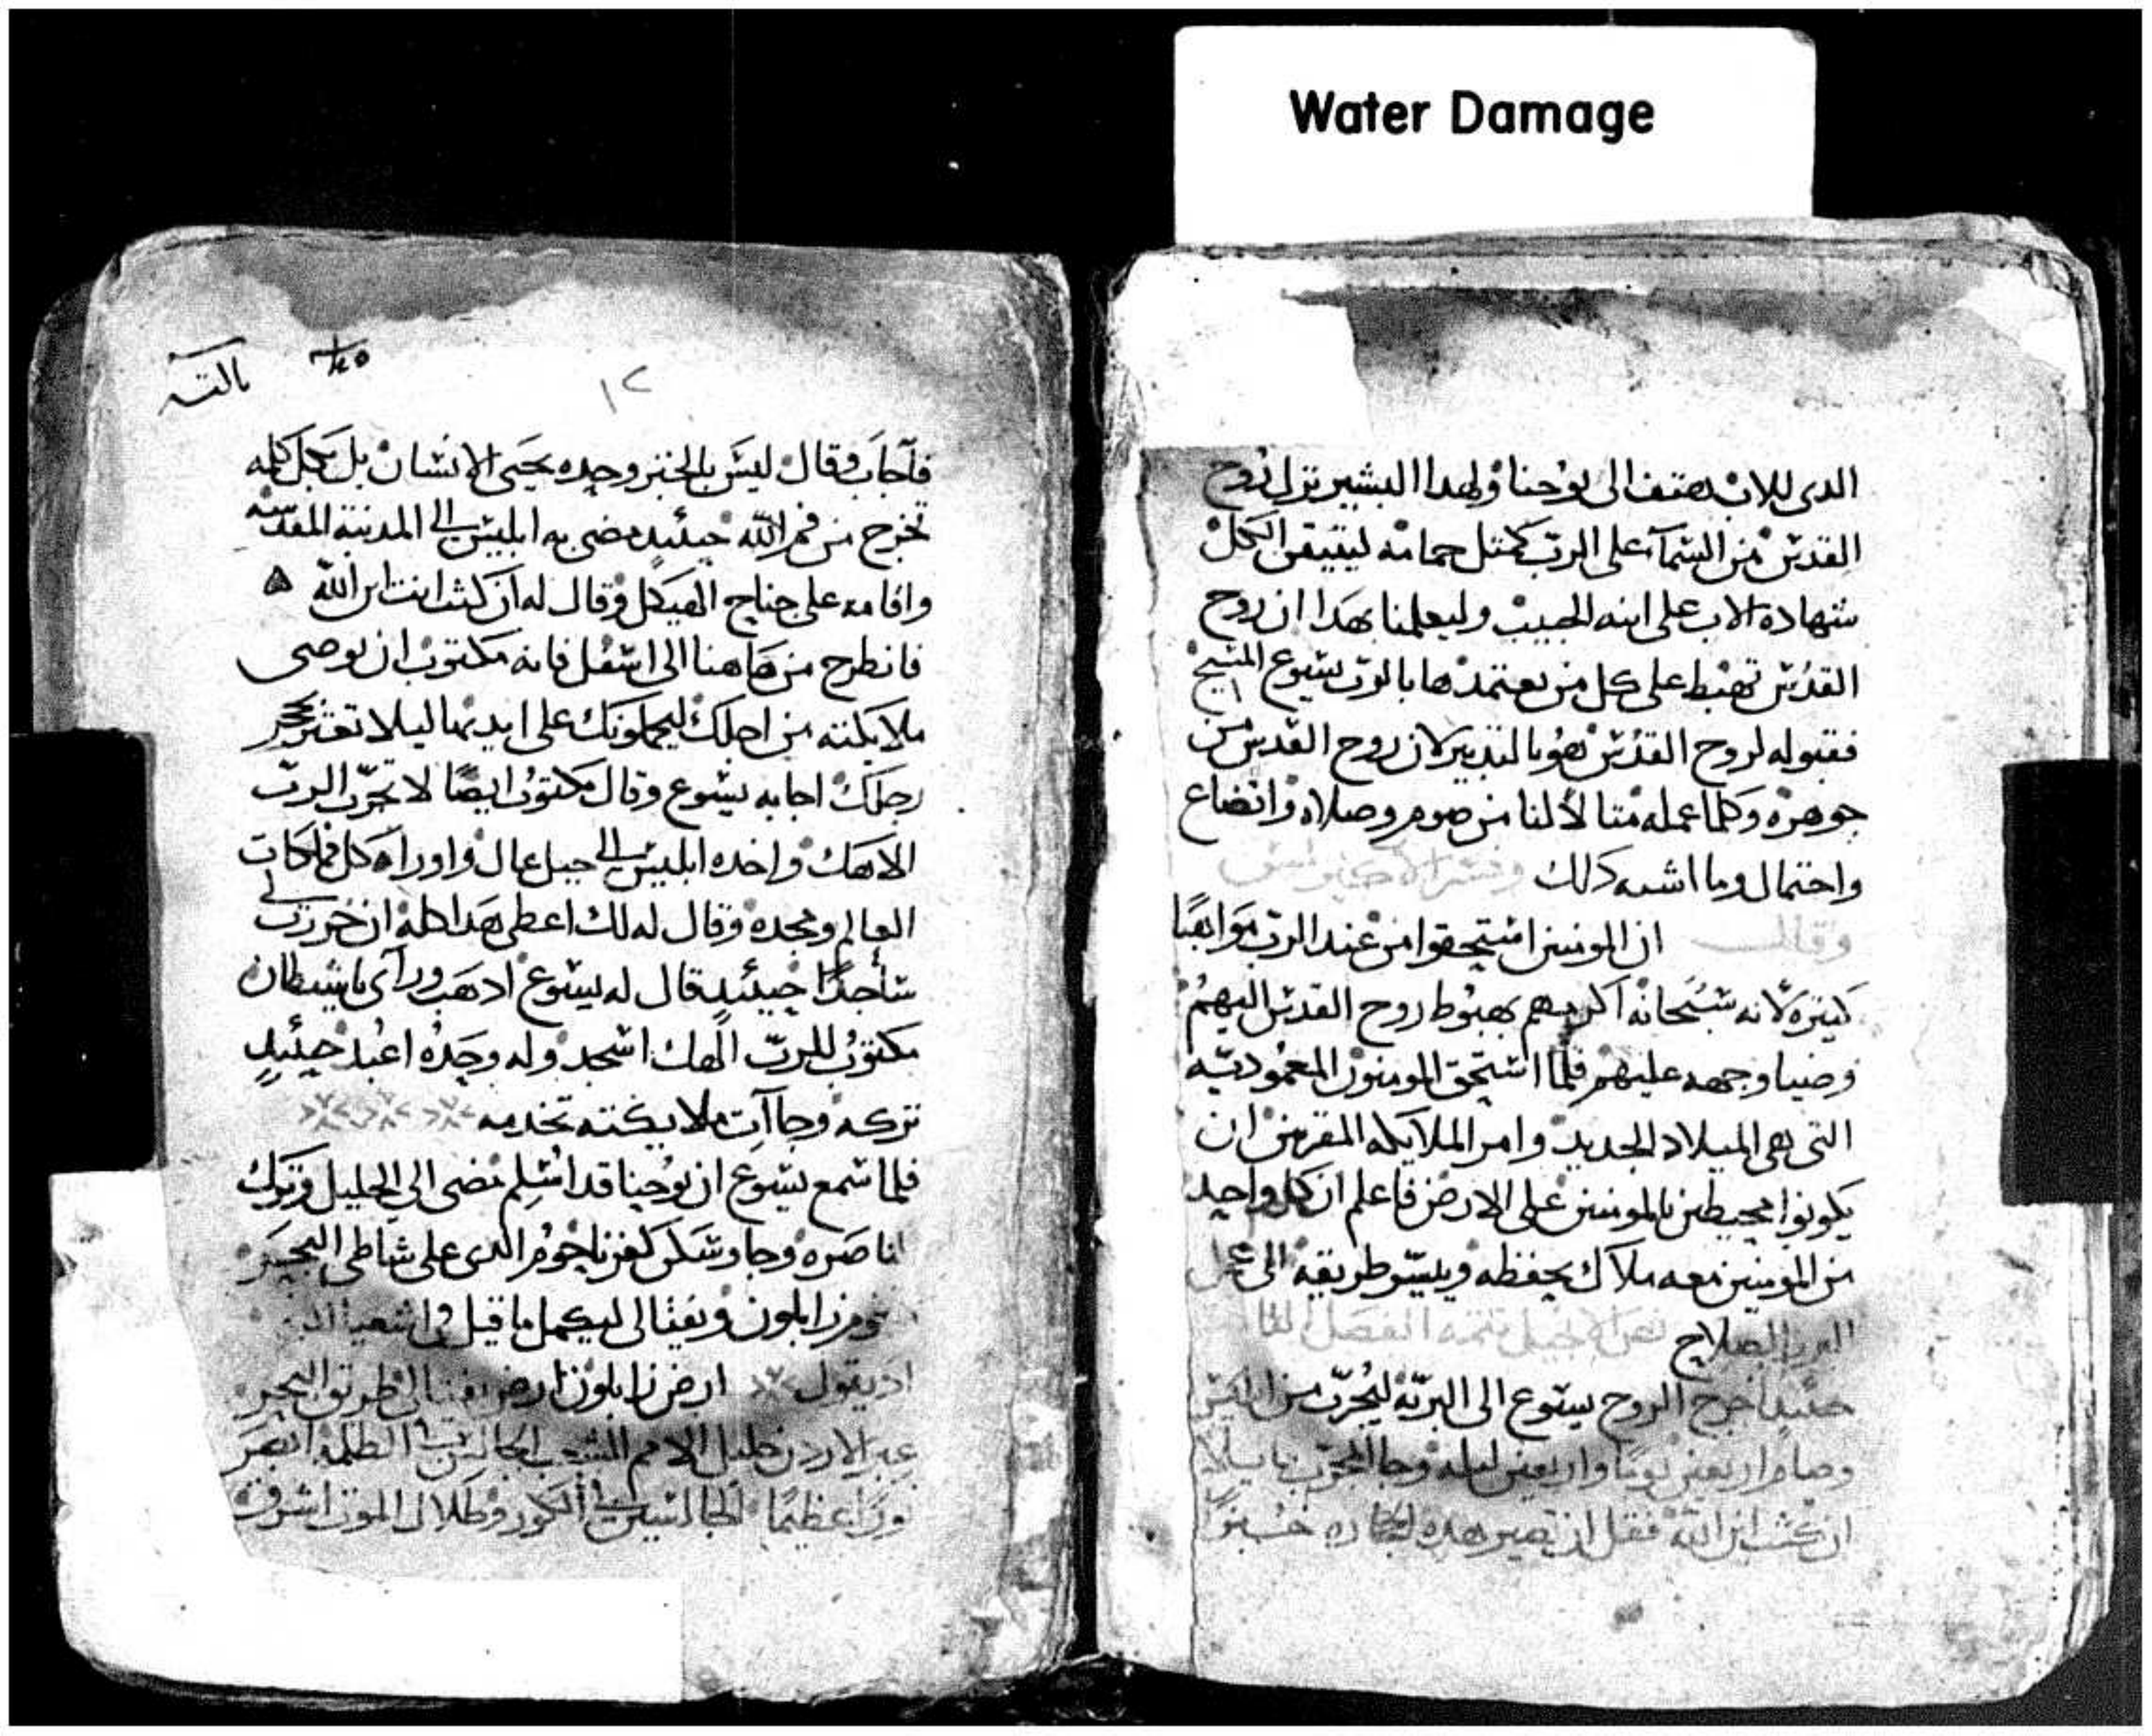 Water Damage
الدى للاب يهتف الى يوحنا ولهدا البشير نزل روح
القدس من السماء على الرب كمتل حمامه ليتيقن الكل
شهادة الاب على ابنه الحبيب وليعلمنا بهدا ان روح
القدس تهبط على كل من يعتمد بالرب يسوع المسيح
فقبوله لروح القدس هو بالتدبير لان روح القدس من
جوهره وكلما عمله متالا لنا من صوم وصلاه واتضاع
واحتمال وما اشبه دلك
وقال ان المومنين استحقوا من عند الرب مواهبا
كتيره لانه سبحانه اكرمهم بهبوط روح القدس اليهم
وضيا وجهه عليهم فلما استحق المومنون المعموديه
التى هى الميلاد الجديد وامر الملايكه المقربين ان
يكونوا محيطين بالمومنين على الارض فاعلم ان كل واحد
من المومنين معه ملاك يحفظه وييسر طريقه الى عمل
البر والصلاح نص الانجيل تتمه الفصل
حينيد اخرج الروح يسوع الى البريه ليجرب من ابليس
وصام اربعين يوما واربعين ليله وجا المجرب قايلا
ان كنت ابن الله فقل ان تصير هده الحجاره خبزا
١٢
فأجاب وقال ليس بالخبز وحده يحيى الانسان بل بكل كلمه
تخرج من فم الله حينيد مضى به ابليس الى المدينة المقدسه
واقامه على جناح الهيكل وقال له ان كنت انت ابن الله
فانطرح من هاهنا الى اسفل فانه مكتوب ان يوصى
ملايكته من اجلك ليحملونك على ايديها ليلا تعتر بحجر
رجلك اجابه يسوع وقال مكتوب ايضا لا تجرب الرب
الاهك واخده ابليس الى جبل عال واوراه كل مملكات
العالم ومجده وقال له لك اعطى هدا كله ان خررت لى
ساجدا حينئيد قال له يسوع ادهب ورآى ياشيطان
مكتوب للرب الهك اسجد وله وحده اعبد حينئيد
تركه وجاآت ملايكته تخدمه
فلما سمع يسوع ان يوحنا قد اسلم مضى الى الجليل وترك
الناصره وجا وسكن كفرناحوم الدى على شاطى البحر
تخوم زابلون ونفتالى ليكمل ما قيل فى اشعيا
اد يقول ارض زابلون ارض نفتالى طريق البحر
عبر الاردن جليل الامم الشعب الجالس فى الظلمه ابصر
نورا عظيما الجالسين فى الكور وظلال الموت اشرق